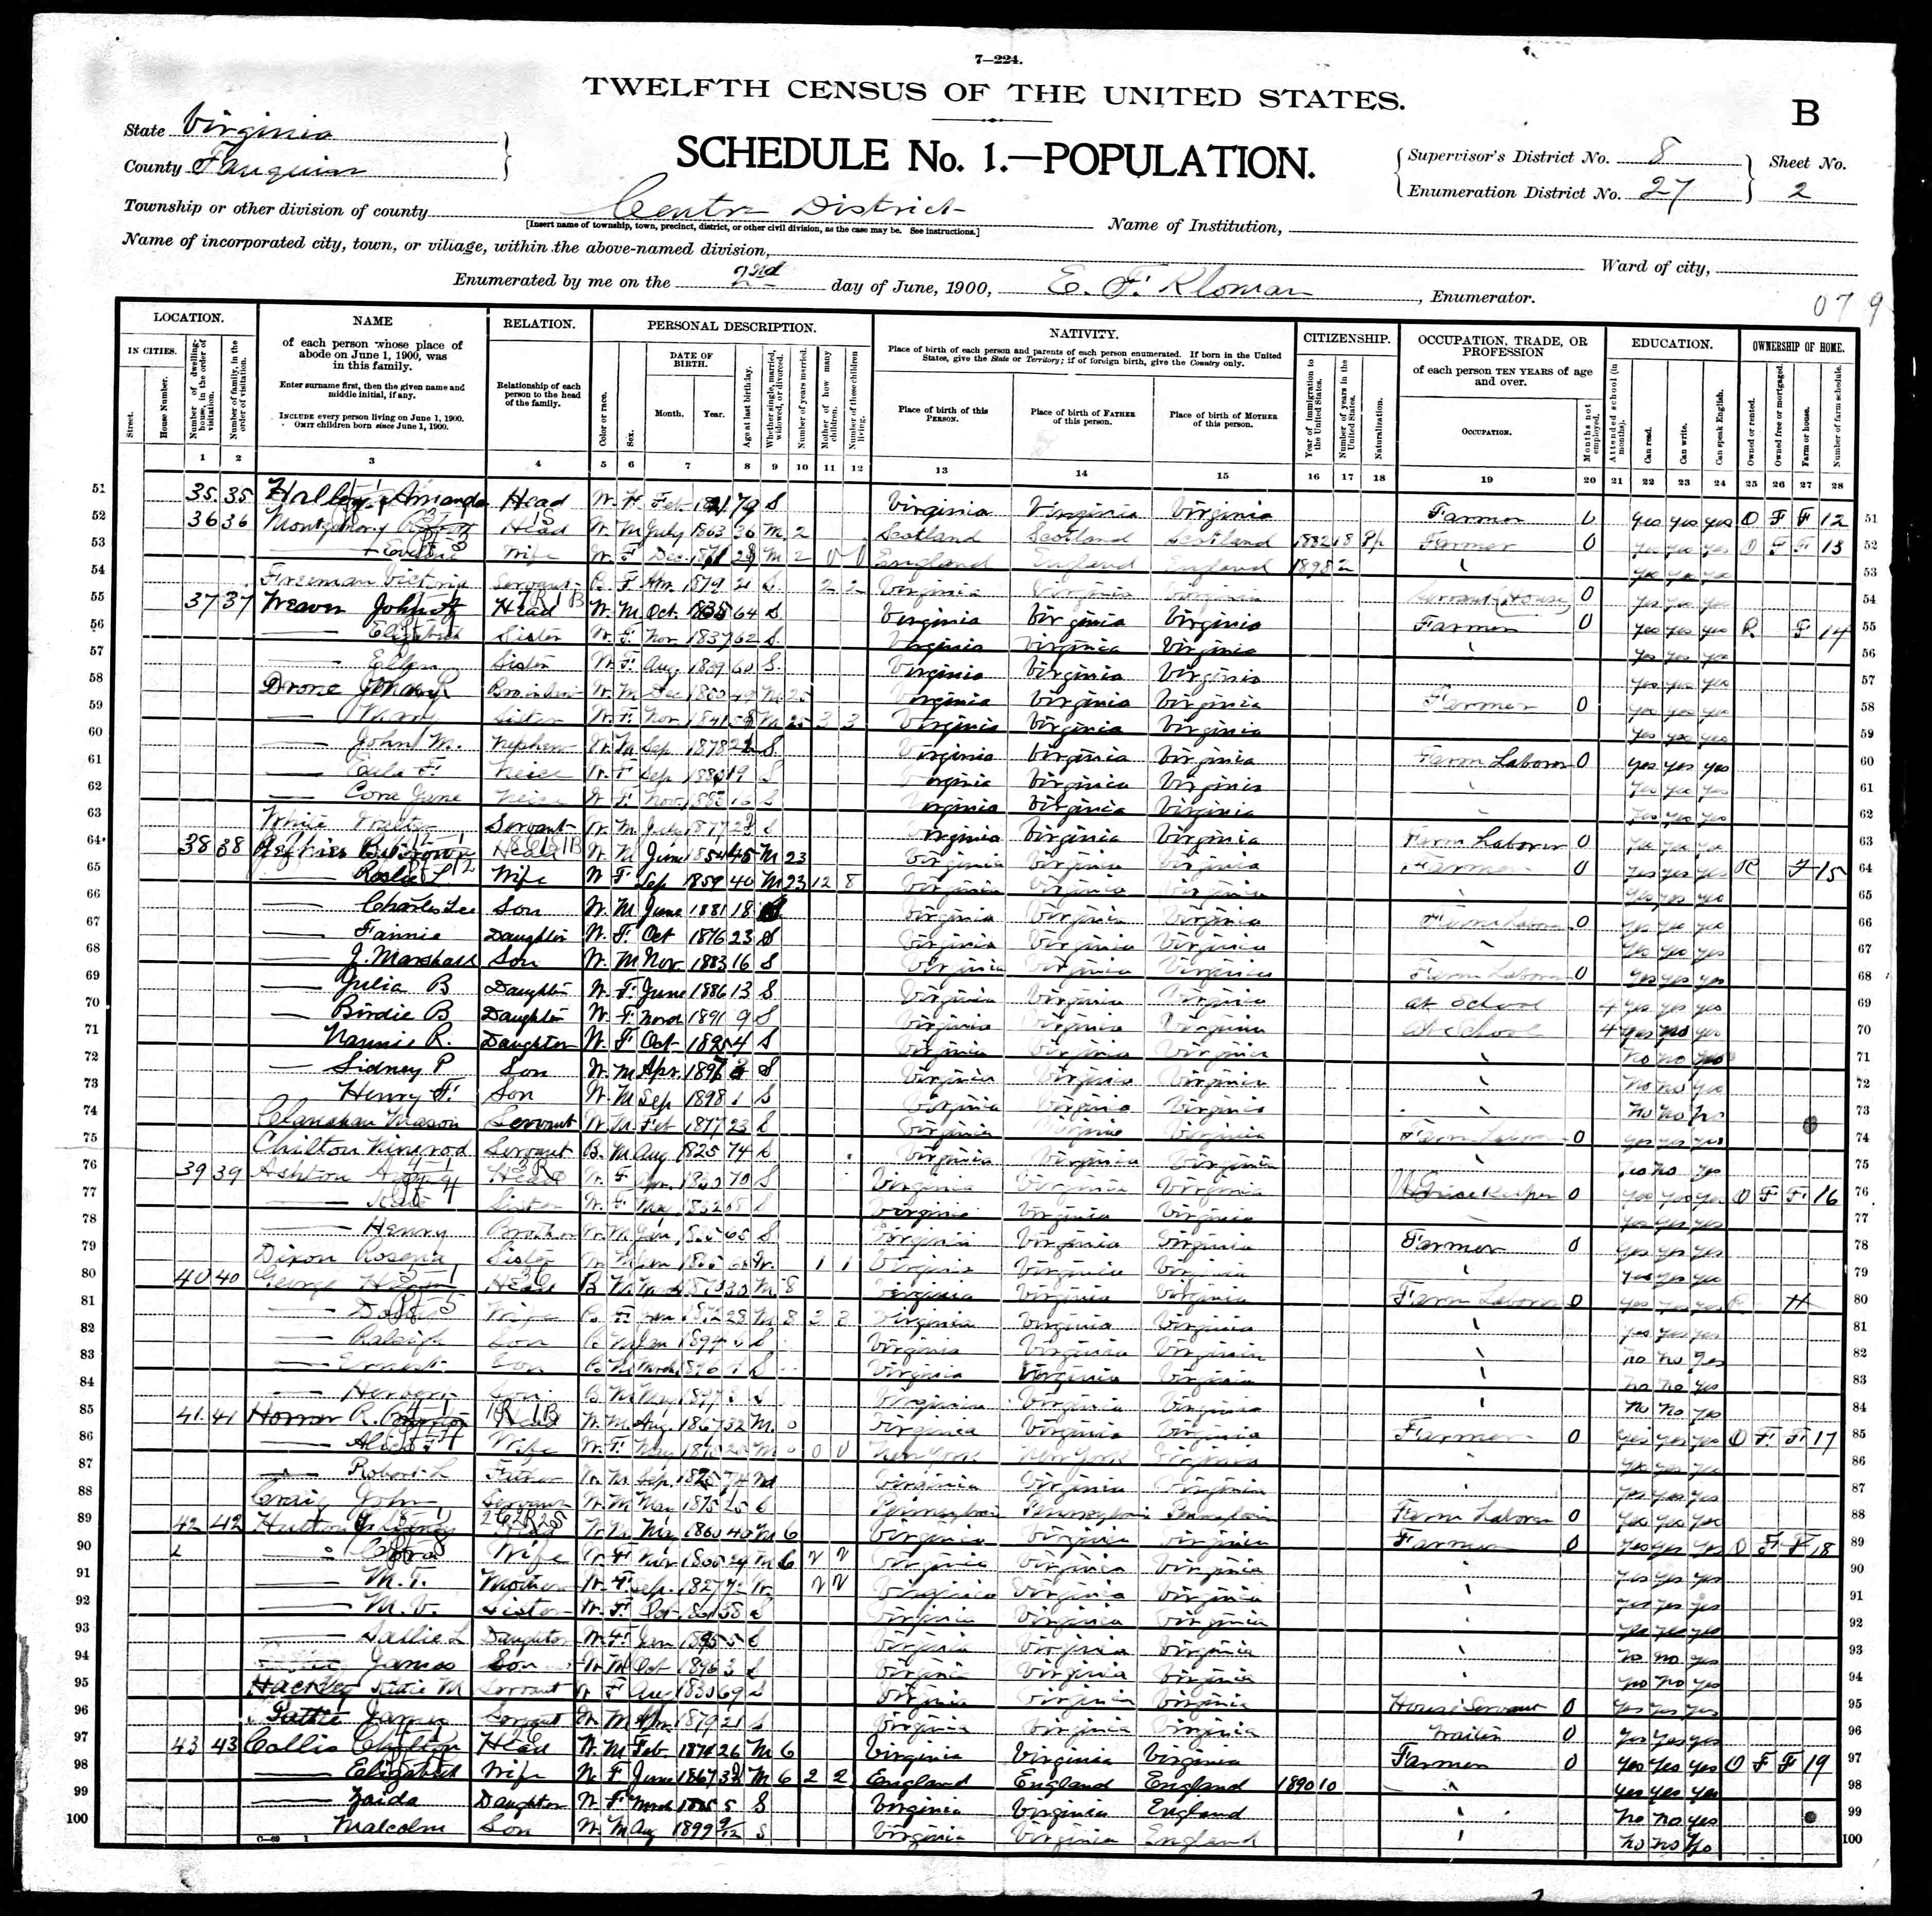 7—224.
TWELFTH CENSUS OF THE UNITED STATES.
B
State Virginia
County Fauquier
SCHEDULE No. 1.—POPULATION.
Supervisor's District No. 8
Enumeration District No. 27
Sheet No.
2
Township or other division of county Centre District
[Insert name of township, town, precinct, district, or other civil division, as the case may be. See instructions.]
Name of Institution,
Name of incorporated city, town, or village, within the above-named division,
Ward of city,
Enumerated by me on the 2nd day of June, 1900, E. F. Kloman, Enumerator.
079
LOCATION.
IN CITIES.
Street.
House Number.
Number of dwelling-house, in the order of visitation.
Number of family, in the order of visitation.
NAME
of each person whose place of abode on June 1, 1900, was in this family.
Enter surname first, then the given name and middle initial, if any.
INCLUDE every person living on June 1, 1900.
OMIT children born since June 1, 1900.
RELATION.
Relationship of each person to the head of the family.
PERSONAL DESCRIPTION.
Color or race.
Sex.
DATE OF BIRTH.
Month.
Year.
Age at last birthday.
Whether single, married, widowed, or divorced.
Number of years married.
Mother of how many children.
Number of these children living.
NATIVITY.
Place of birth of each person and parents of each person enumerated. If born in the United States, give the State or Territory; if of foreign birth, give the Country only.
Place of birth of this PERSON.
Place of birth of FATHER of this person.
Place of birth of MOTHER of this person.
CITIZENSHIP.
Year of immigration to the United States.
Number of years in the United States.
Naturalization.
OCCUPATION, TRADE, OR PROFESSION
of each person TEN YEARS of age and over.
OCCUPATION.
Months not employed.
EDUCATION.
Attended school (in months).
Can read.
Can write.
Can speak English.
OWNERSHIP OF HOME.
Owned or rented.
Owned free or mortgaged.
Farm or house.
Number of farm schedule.
1 2 3 4 5 6 7 8 9 10 11 12 13 14 15 16 17 18 19 20 21 22 23 24 25 26 27 28
51 35 35 Amanda Head W F Feb 79 S Virginia Virginia Virginia Farmer 0 yes yes yes O F F 12 51
52 36 36 Montgomery Head W M July 1863 36 M 2 Scotland Scotland Scotland 1882 18 Farmer 0 yes yes yes O F F 13 52
53 Wife W F Dec 1871 28 M 2 0 0 England England England 1898 2 yes yes yes 53
54 Freeman Victoria Servant B F 1879 21 S 2 2 Virginia Virginia Virginia Servant (House) 0 yes yes yes 54
55 37 37 Weaver John Head W M Oct 64 S Virginia Virginia Virginia Farmer 0 yes yes yes R F 14 55
56 Elizabeth Sister W F Nov 1837 62 S Virginia Virginia Virginia yes yes yes 56
57 Ellen Sister W F Aug 1839 60 S Virginia Virginia Virginia yes yes yes 57
58 Drone W M Dec 1850 49 M 25 Virginia Virginia Virginia Farmer 0 yes yes yes 58
59 Mary Sister W F Nov 1841 58 M 25 3 3 Virginia Virginia Virginia yes yes yes 59
60 John M. Nephew W M Sep 1878 S Virginia Virginia Virginia Farm Laborer 0 yes yes yes 60
61 Neice W F Sep 1880 19 S Virginia Virginia Virginia yes yes yes 61
62 Cora Jane Neice W F Nov 1883 16 S Virginia Virginia Virginia yes yes yes 62
63 White Walter Servant W M July 1877 22 S Virginia Virginia Virginia Farm Laborer 0 yes yes yes 63
64 38 38 Head W M June 1854 45 M 23 Virginia Virginia Virginia Farmer 0 yes yes yes R F 15 64
65 Wife W F Sep 1859 40 M 23 12 8 Virginia Virginia Virginia yes yes yes 65
66 Charles Lee Son W M June 1881 18 Virginia Virginia Virginia Farm Laborer 0 yes yes yes 66
67 Fannie Daughter W F Oct 1876 23 S Virginia Virginia Virginia yes yes yes 67
68 J. Marshall Son W M Nov 1883 16 S Virginia Virginia Virginia Farm Laborer 0 yes yes yes 68
69 Julia B Daughter W F June 1886 13 S Virginia Virginia Virginia at School 4 yes yes yes 69
70 Birdie B Daughter W F March 1891 9 S Virginia Virginia Virginia At School 4 yes no yes 70
71 Nannie R. Daughter W F Oct 1895 4 S Virginia Virginia Virginia no no yes 71
72 Sidney P Son W M Apr 1897 3 S Virginia Virginia Virginia no no yes 72
73 Henry F. Son W M Sep 1898 1 S Virginia Virginia Virginia no no no 73
74 Clanahan Mason Servant W M Feb 1877 23 S Virginia Virginia Virginia Farm Laborer 0 yes yes yes 74
75 Chilton Nimrod Servant B M Aug 1825 74 S Virginia Virginia Virginia no no yes 75
76 39 39 Ashton Head W F 1830 70 S Virginia Virginia Virginia House Keeper 0 yes yes yes O F F 16 76
77 Sister W F 1832 68 S Virginia Virginia Virginia yes yes yes 77
78 Henry Brother W M Jan 1835 65 S Virginia Virginia Virginia Farmer 0 yes yes yes 78
79 Dixon Sister 1 1 Virginia Virginia Virginia yes yes yes 79
80 40 40 George Head B M March 1870 30 M 8 Virginia Virginia Virginia Farm Laborer 0 yes yes yes R H 80
81 Wife B F Jan 1872 28 M 8 3 3 Virginia Virginia Virginia yes yes yes 81
82 Raleigh Son B M Jan 1894 6 S Virginia Virginia Virginia no no yes 82
83 Ernest Son B M March 1896 4 S Virginia Virginia Virginia no no yes 83
84 Herbert Son B M May 1897 3 S Virginia Virginia Virginia no no yes 84
85 41 41 Horner R. Head W M Aug 1867 32 M 0 Virginia Virginia Virginia Farmer 0 yes yes yes O F F 17 85
86 Wife W F May M 0 0 0 New York New York Virginia yes yes yes 86
87 Robert L Father W M Sep 1825 74 Wd Virginia Virginia Virginia yes yes yes 87
88 Craig John Servant W M Mar 1875 25 S Pennsylvania Pennsylvania Pennsylvania Farm Laborer 0 yes yes yes 88
89 42 42 Hutton W M 1860 40 M 6 Virginia Virginia Virginia Farmer 0 yes yes yes O F F 18 89
90 Wife W F M 6 2 2 Virginia Virginia Virginia yes yes yes 90
91 M. T. Mother W F Sep 1827 72 W 2 2 Virginia Virginia Virginia yes yes yes 91
92 M. V. Sister W F Oct 1861 38 S Virginia Virginia Virginia yes yes yes 92
93 Sallie L Daughter W F Jan 1895 5 S Virginia Virginia Virginia no no yes 93
94 James Son W M Oct 1896 3 S Virginia Virginia Virginia no no yes 94
95 Hackley M Servant W F Aug 1830 69 S Virginia Virginia Virginia House Servant 0 yes yes yes 95
96 Pattie James Servant W M Apr 1879 21 S Virginia Virginia Virginia 0 yes yes yes 96
97 43 43 Collis Head W M Feb 1874 26 M 6 Virginia Virginia Virginia Farmer 0 yes yes yes O F F 19 97
98 Elizabeth Wife W F June 1867 32 M 6 2 2 England England England 1890 10 yes yes yes 98
99 Zaida Daughter W F March 5 S Virginia Virginia England no no yes 99
100 Malcolm Son W M Aug 1899 9/12 S Virginia Virginia England no no no 100